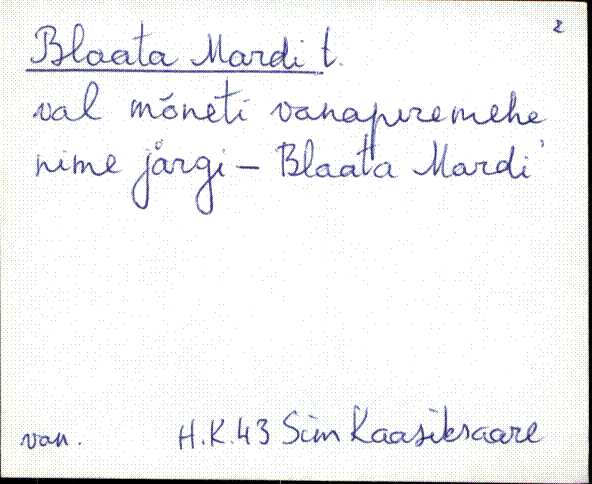 2
Blaata Mardi t.
val mõneti vanaperemehe
nime järgi – Blaata Mardi'
van. H.K.43 Sim Kaasiksaare